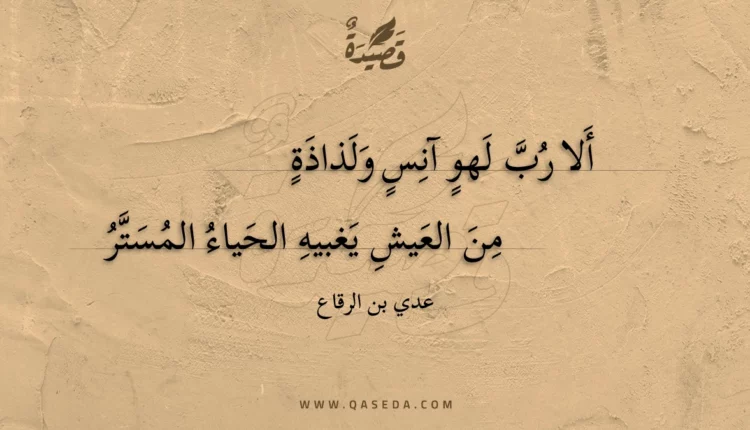 قَصِيدَةٌ
أَلا رُبَّ لَهوٍ آنِسٍ وَلَذاذَةٍ
مِنَ العَيشِ يَغبيهِ الحَياءُ المُسَتَّرُ
عدي بن الرقاع
WWW.QASEDA.COM